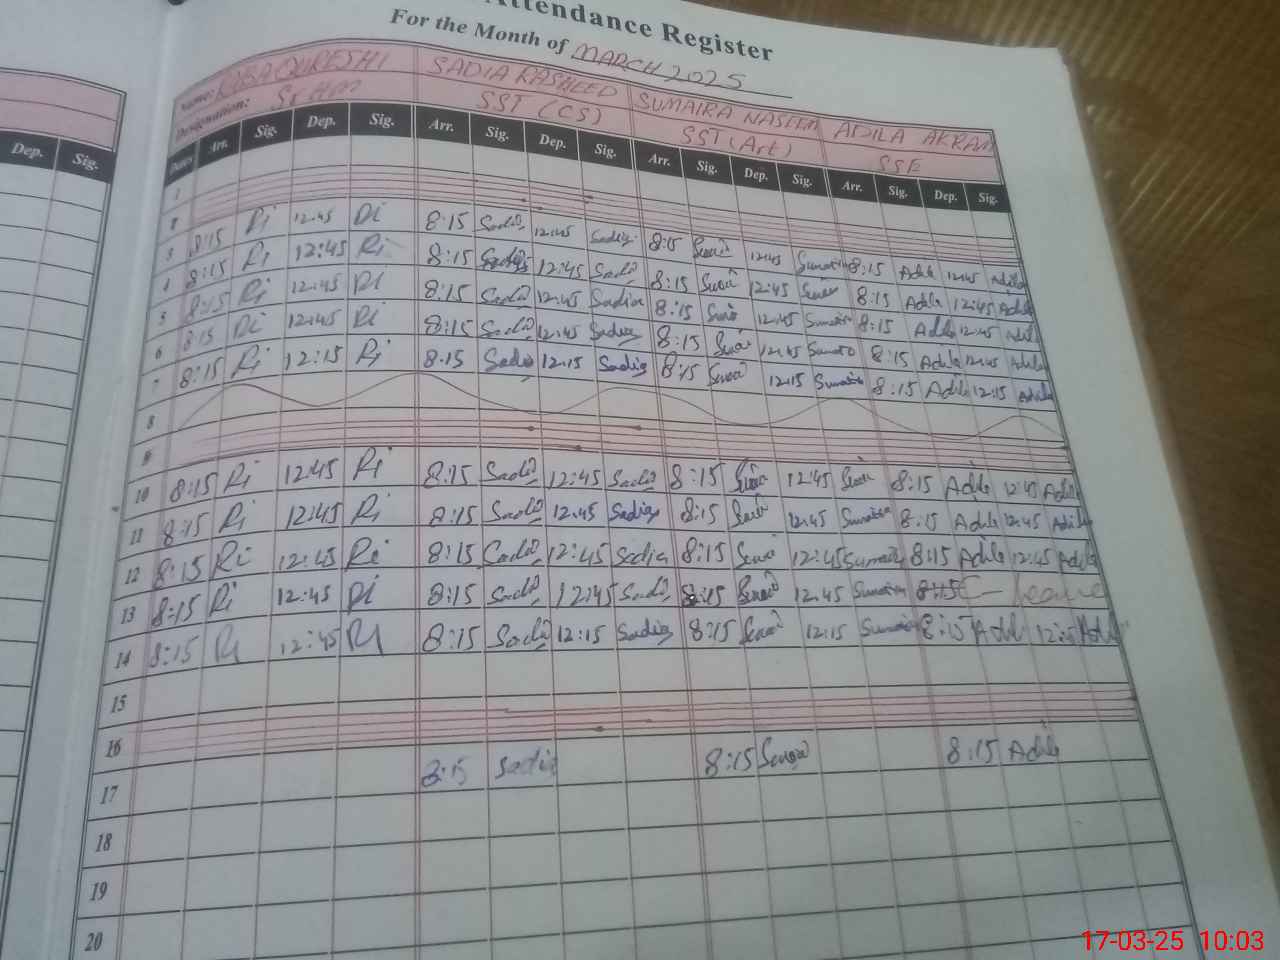 Attendance Register
For the Month of MARCH 2025
Name: QURESHI SADIA RASHEED SUMAIRA NASEEM ADILA AKRAM
Designation: SST (CS) SST (Art) SSE
Dep. Sig. Dates Arr. Sig. Dep. Sig. Arr. Sig. Dep. Sig. Arr. Sig. Dep. Sig. Arr. Sig. Dep. Sig.
1
2
3 8:15 Ri 12:45 Ri 8:15 Sadia 12:45 Sadia 8:15 12:45 Sumaira 8:15 Adila 12:45 Adila
4 8:15 Ri 12:45 Ri 8:15 Sadia 12:45 Sadia 8:15 12:45 8:15 Adila 12:45 Adila
5 8:15 Ri 12:45 Ri 8:15 Sadia 12:45 Sadia 8:15 12:45 Sumaira 8:15 Adila 12:45 Adila
6 8:15 Ri 12:45 Ri 8:15 Sadia 12:45 Sadia 8:15 12:45 Sumaira 8:15 Adila 12:45 Adila
7 8:15 Ri 12:15 Ri 8:15 Sadia 12:15 Sadia 8:15 12:15 Sumaira 8:15 Adila 12:15 Adila
8
9
10 8:15 Ri 12:45 Ri 8:15 Sadia 12:45 Sadia 8:15 12:45 8:15 Adila 12:45 Adila
11 8:15 Ri 12:45 Ri 8:15 Sadia 12:45 Sadia 8:15 12:45 Sumaira 8:15 Adila 12:45 Adila
12 8:15 Ri 12:45 Ri 8:15 Sadia 12:45 Sadia 8:15 12:45 Sumaira 8:15 Adila 12:45 Adila
13 8:15 Ri 12:45 Ri 8:15 Sadia 12:45 Sadia 8:15 12:45 Sumaira 8:15 C- leave
14 8:15 Ri 12:45 Ri 8:15 Sadia 12:15 Sadia 8:15 12:15 Sumaira 8:15 Adila Adila
15
16
17 8:15 Sadia 8:15 8:15 Adila
18
19
20
17-03-25 10:03